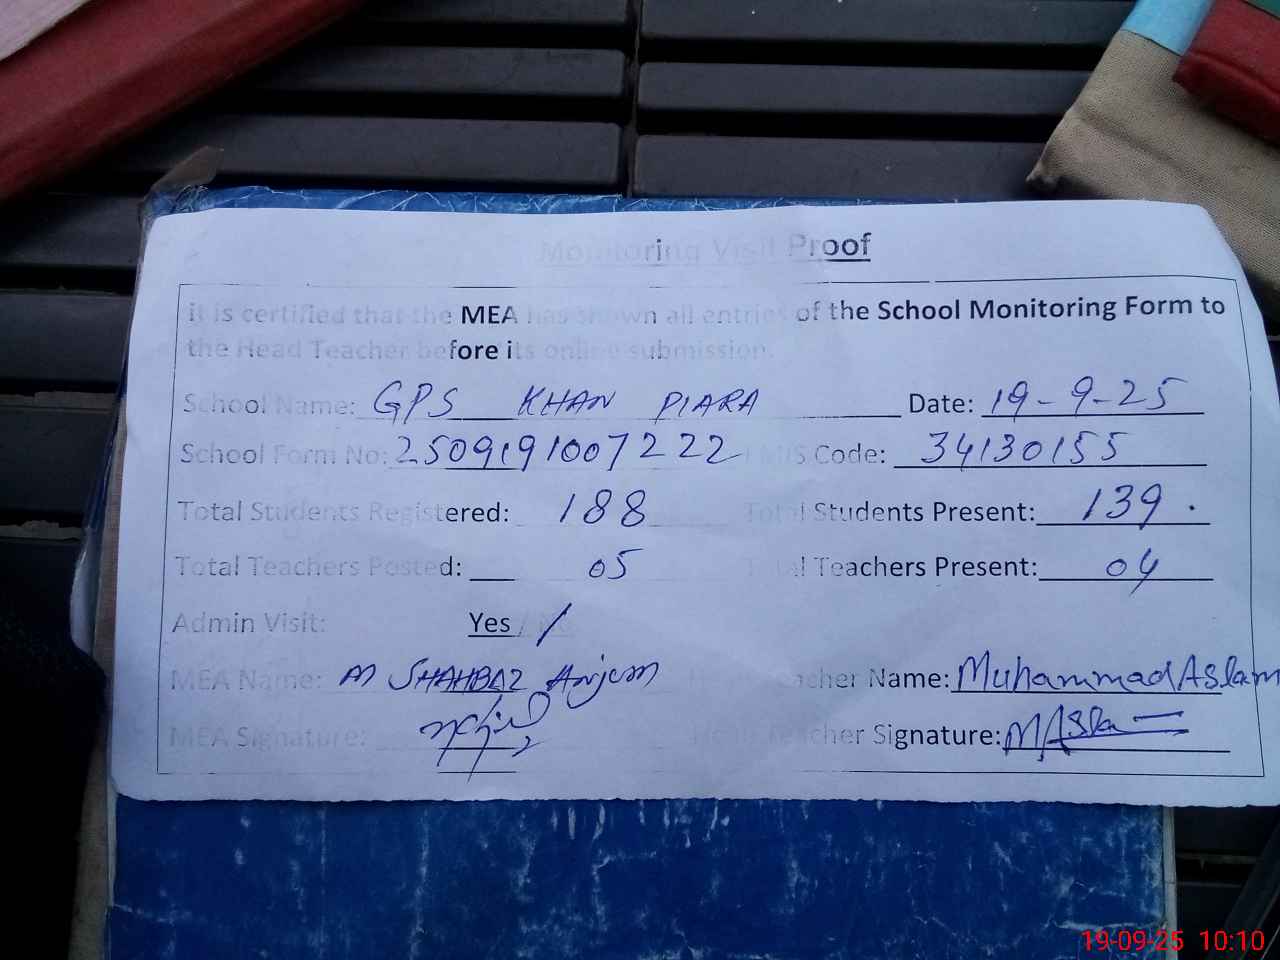 Monitoring Visit Proof
it is certified that the MEA has shown all entries of the School Monitoring Form to
the Head Teacher before its online submission.
School Name: GPS KHAN PIARA Date: 19-9-25
School Form No: 2509191007222 EMIS Code: 34130155
Total Students Registered: 188 Total Students Present: 139.
Total Teachers Posted: 05 Total Teachers Present: 04
Admin Visit: Yes / No
MEA Name: M SHAHBAZ Anjum Head Teacher Name: Muhammad Aslam
MEA Signature: Head Teacher Signature: MAslam
19-09-25 10:10